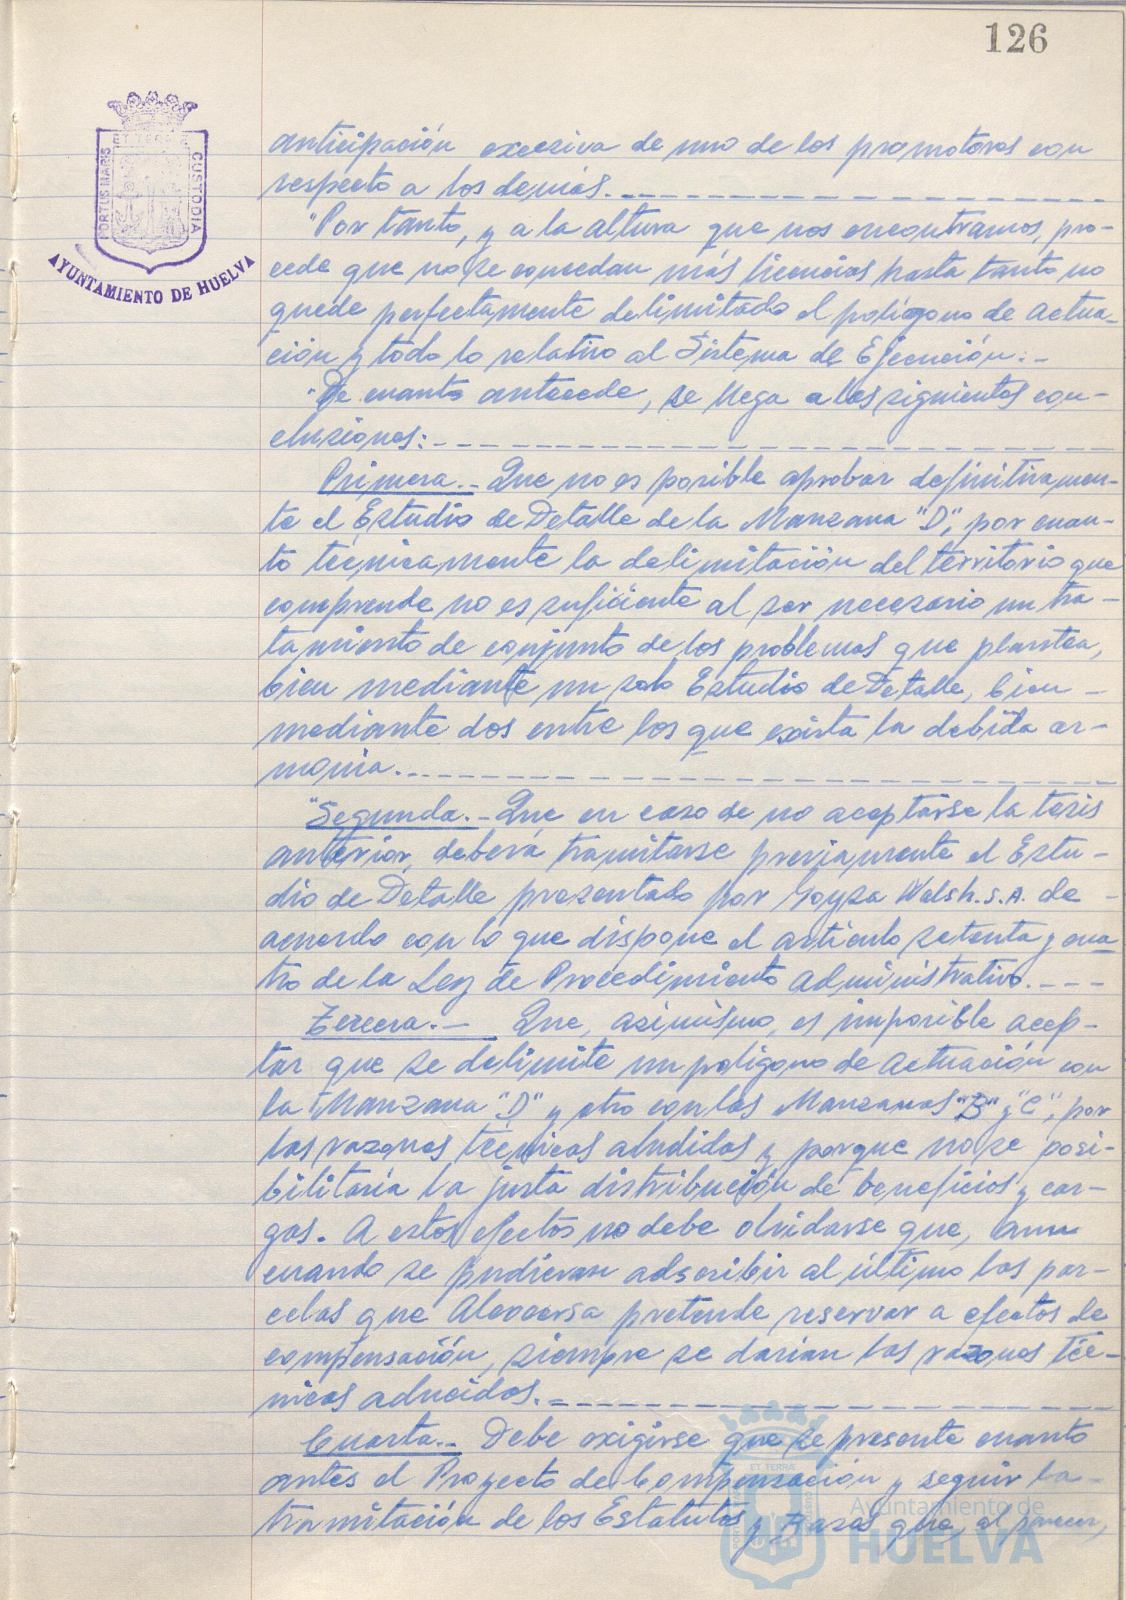 126
PORTUS MARIS ET TERRAE CUSTODIA
AYUNTAMIENTO DE HUELVA
anticipación excesiva de uno de los promotores con
respecto a los demás.
"Por tanto, y a la altura que nos encontramos, pro-
cede que no se concedan más licencias hasta tanto no
quede perfectamente delimitado el polígono de actua-
ción y todo lo relativo al Sistema de Ejecución.-
"De cuanto antecede, se llega a las siguientes con-
clusiones:
Primera.- Que no es posible aprobar definitivamen-
te el Estudio de Detalle de la Manzana "D", por cuan-
to técnicamente la delimitación del territorio que
comprende no es suficiente al ser necesario un tra-
tamiento de conjunto de los problemas que plantea,
bien mediante un solo Estudio de Detalle, bien
mediante dos entre los que exista la debida ar-
monía.
"Segunda.- Que en caso de no aceptarse la tesis
anterior, deberá tramitarse previamente el Estu-
dio de Detalle presentado por Goysa Walsh. S.A. de
acuerdo con lo que dispone el artículo setenta y cua
tro de la Ley de Procedimiento Administrativo.
Tercera.- Que, asimismo, es imposible acep-
tar que se delimite un polígono de actuación con
la Manzana "D" y otro con las Manzanas "B" y "C", por
las razones técnicas aludidas y porque no se posi-
bilitaría la justa distribución de beneficios y car-
gas. A estos efectos no debe olvidarse que, aun
cuando se pudieran adscribir al último las par-
celas que Alocersa pretende reservar a efectos de
compensación, siempre se darían las razones téc-
nicas aducidas.
Cuarta.- Debe exigirse que se presente cuanto
antes el Proyecto de Compensación y seguir la
tramitación de los Estatutos y Bases que, al parecer,
Ayuntamiento de
HUELVA